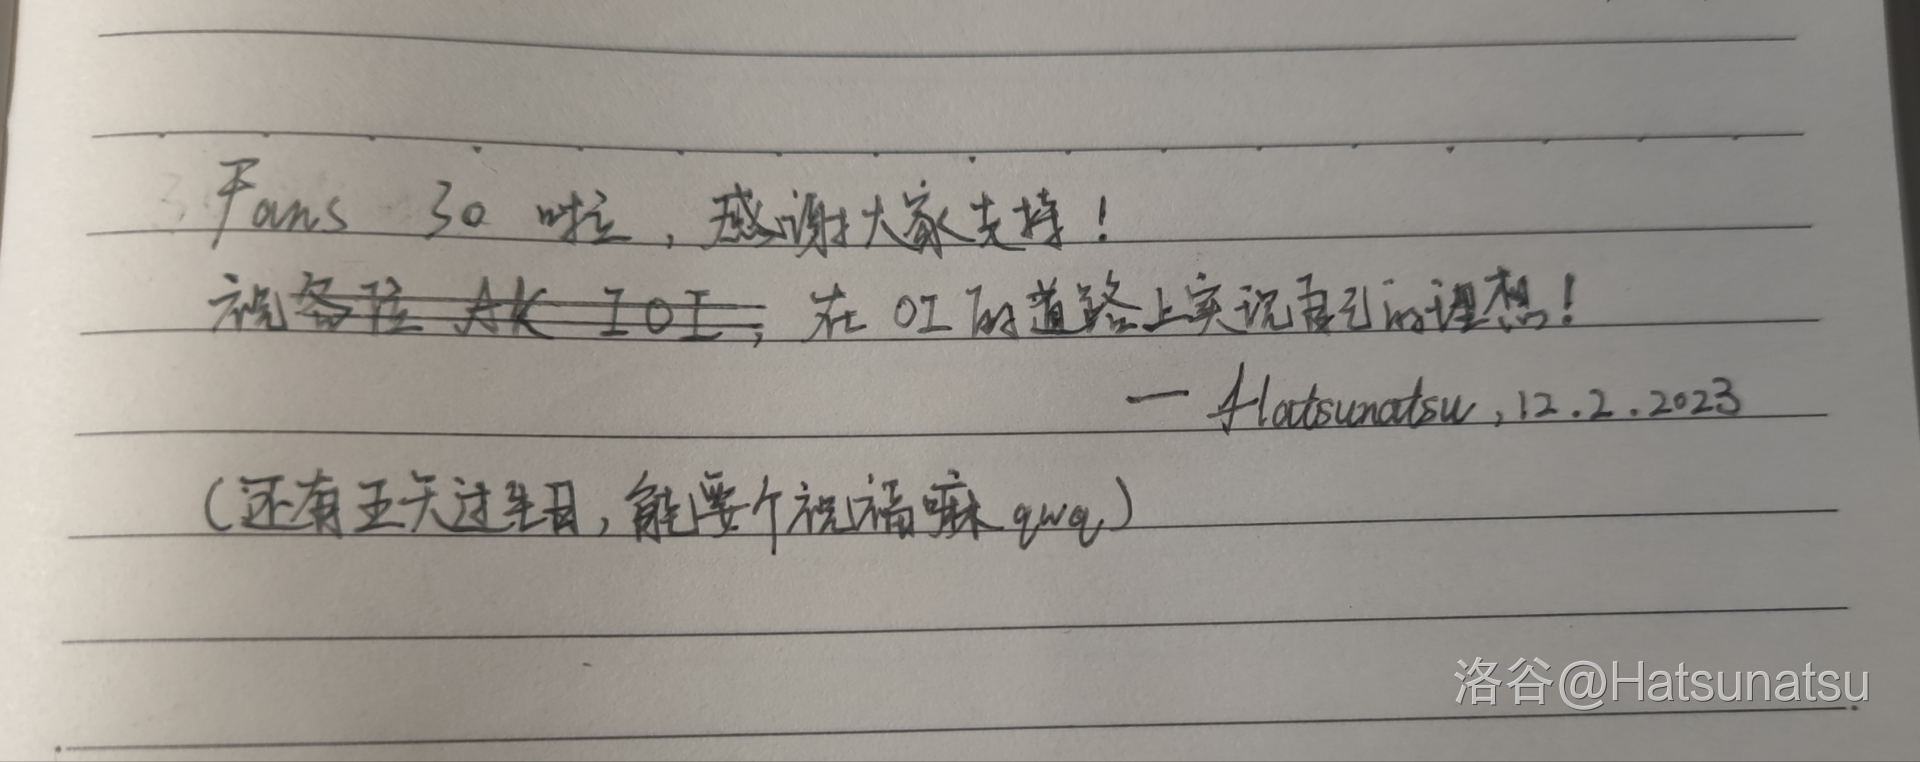 Fans 30 啦，感谢大家支持！
祝各位 AK IOI，在 OI 的道路上实现自己的理想！
— Hatsunatsu, 12.2.2023
（还有五天过生日，能要个祝福嘛 qwq）
洛谷@Hatsunatsu